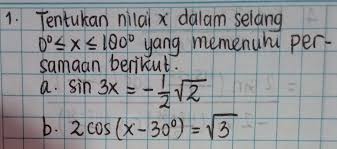 1. Tentukan nilai x dalam selang
0° ≤ x ≤ 180° yang memenuhi per-
samaan berikut.
a. sin 3x = -1/2 √2
b. 2 cos (x - 30°) = √3